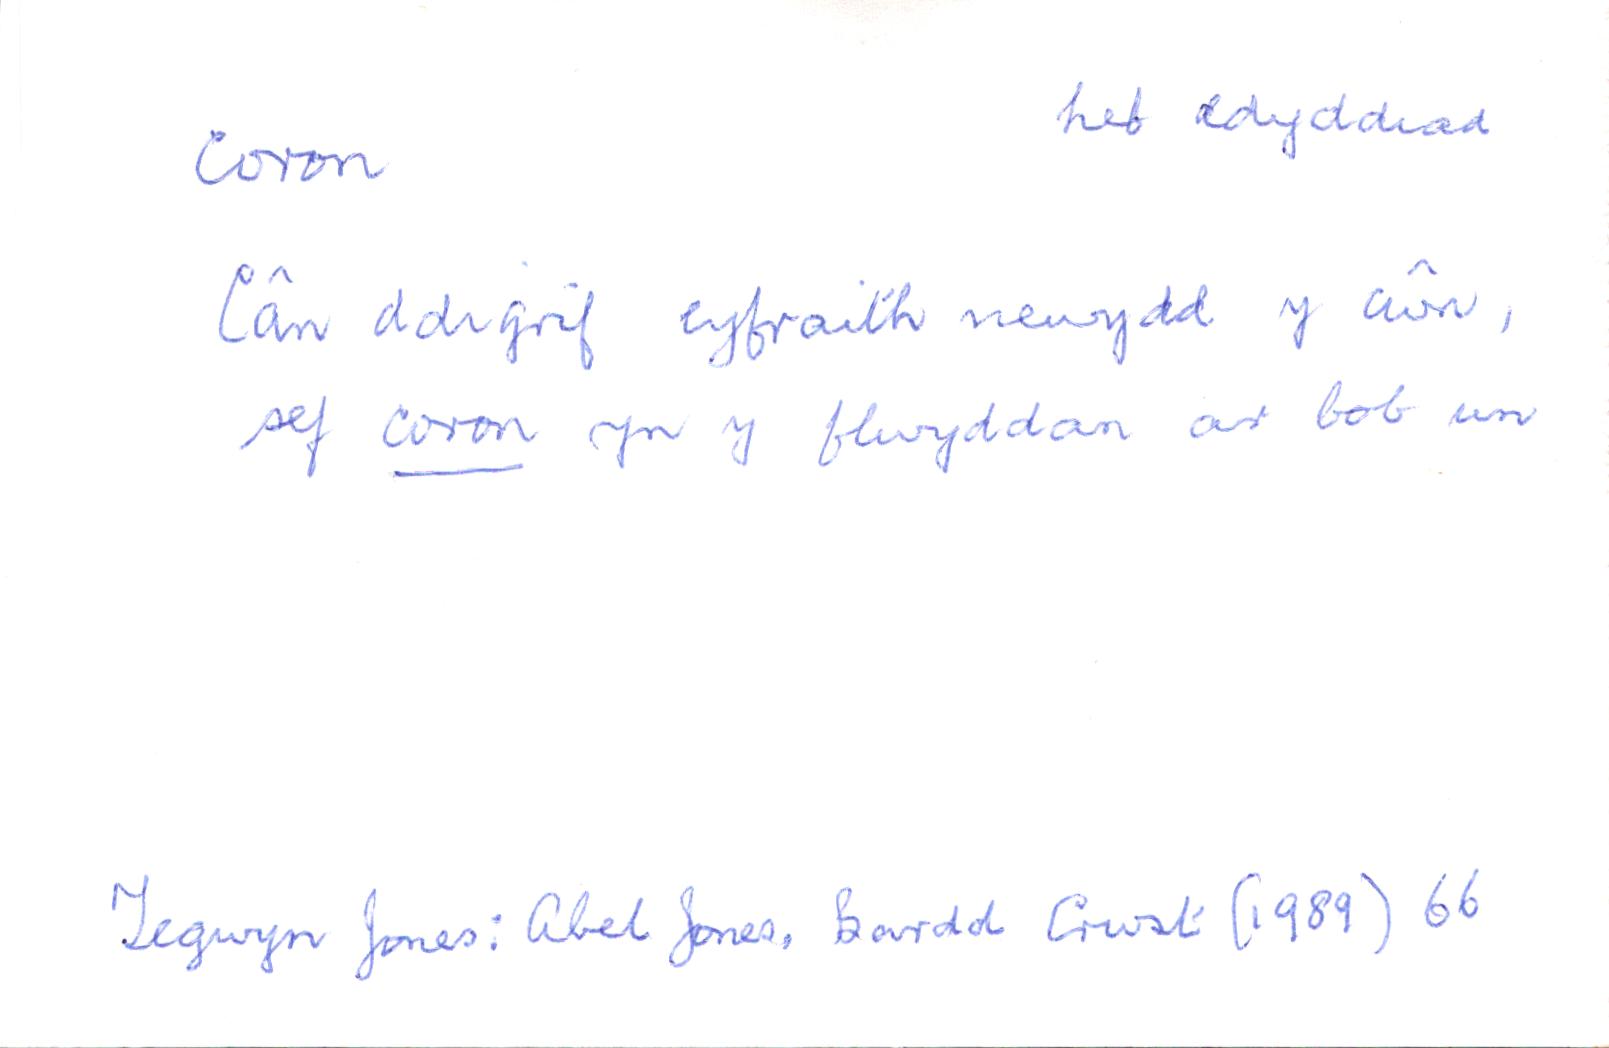 heb ddyddiad
coron
Cân ddigrif cyfraith newydd y cŵn,
sef coron yn y flwyddan ar bob un
Tegwyn Jones: Abel Jones, Bardd Crwst (1989) 66